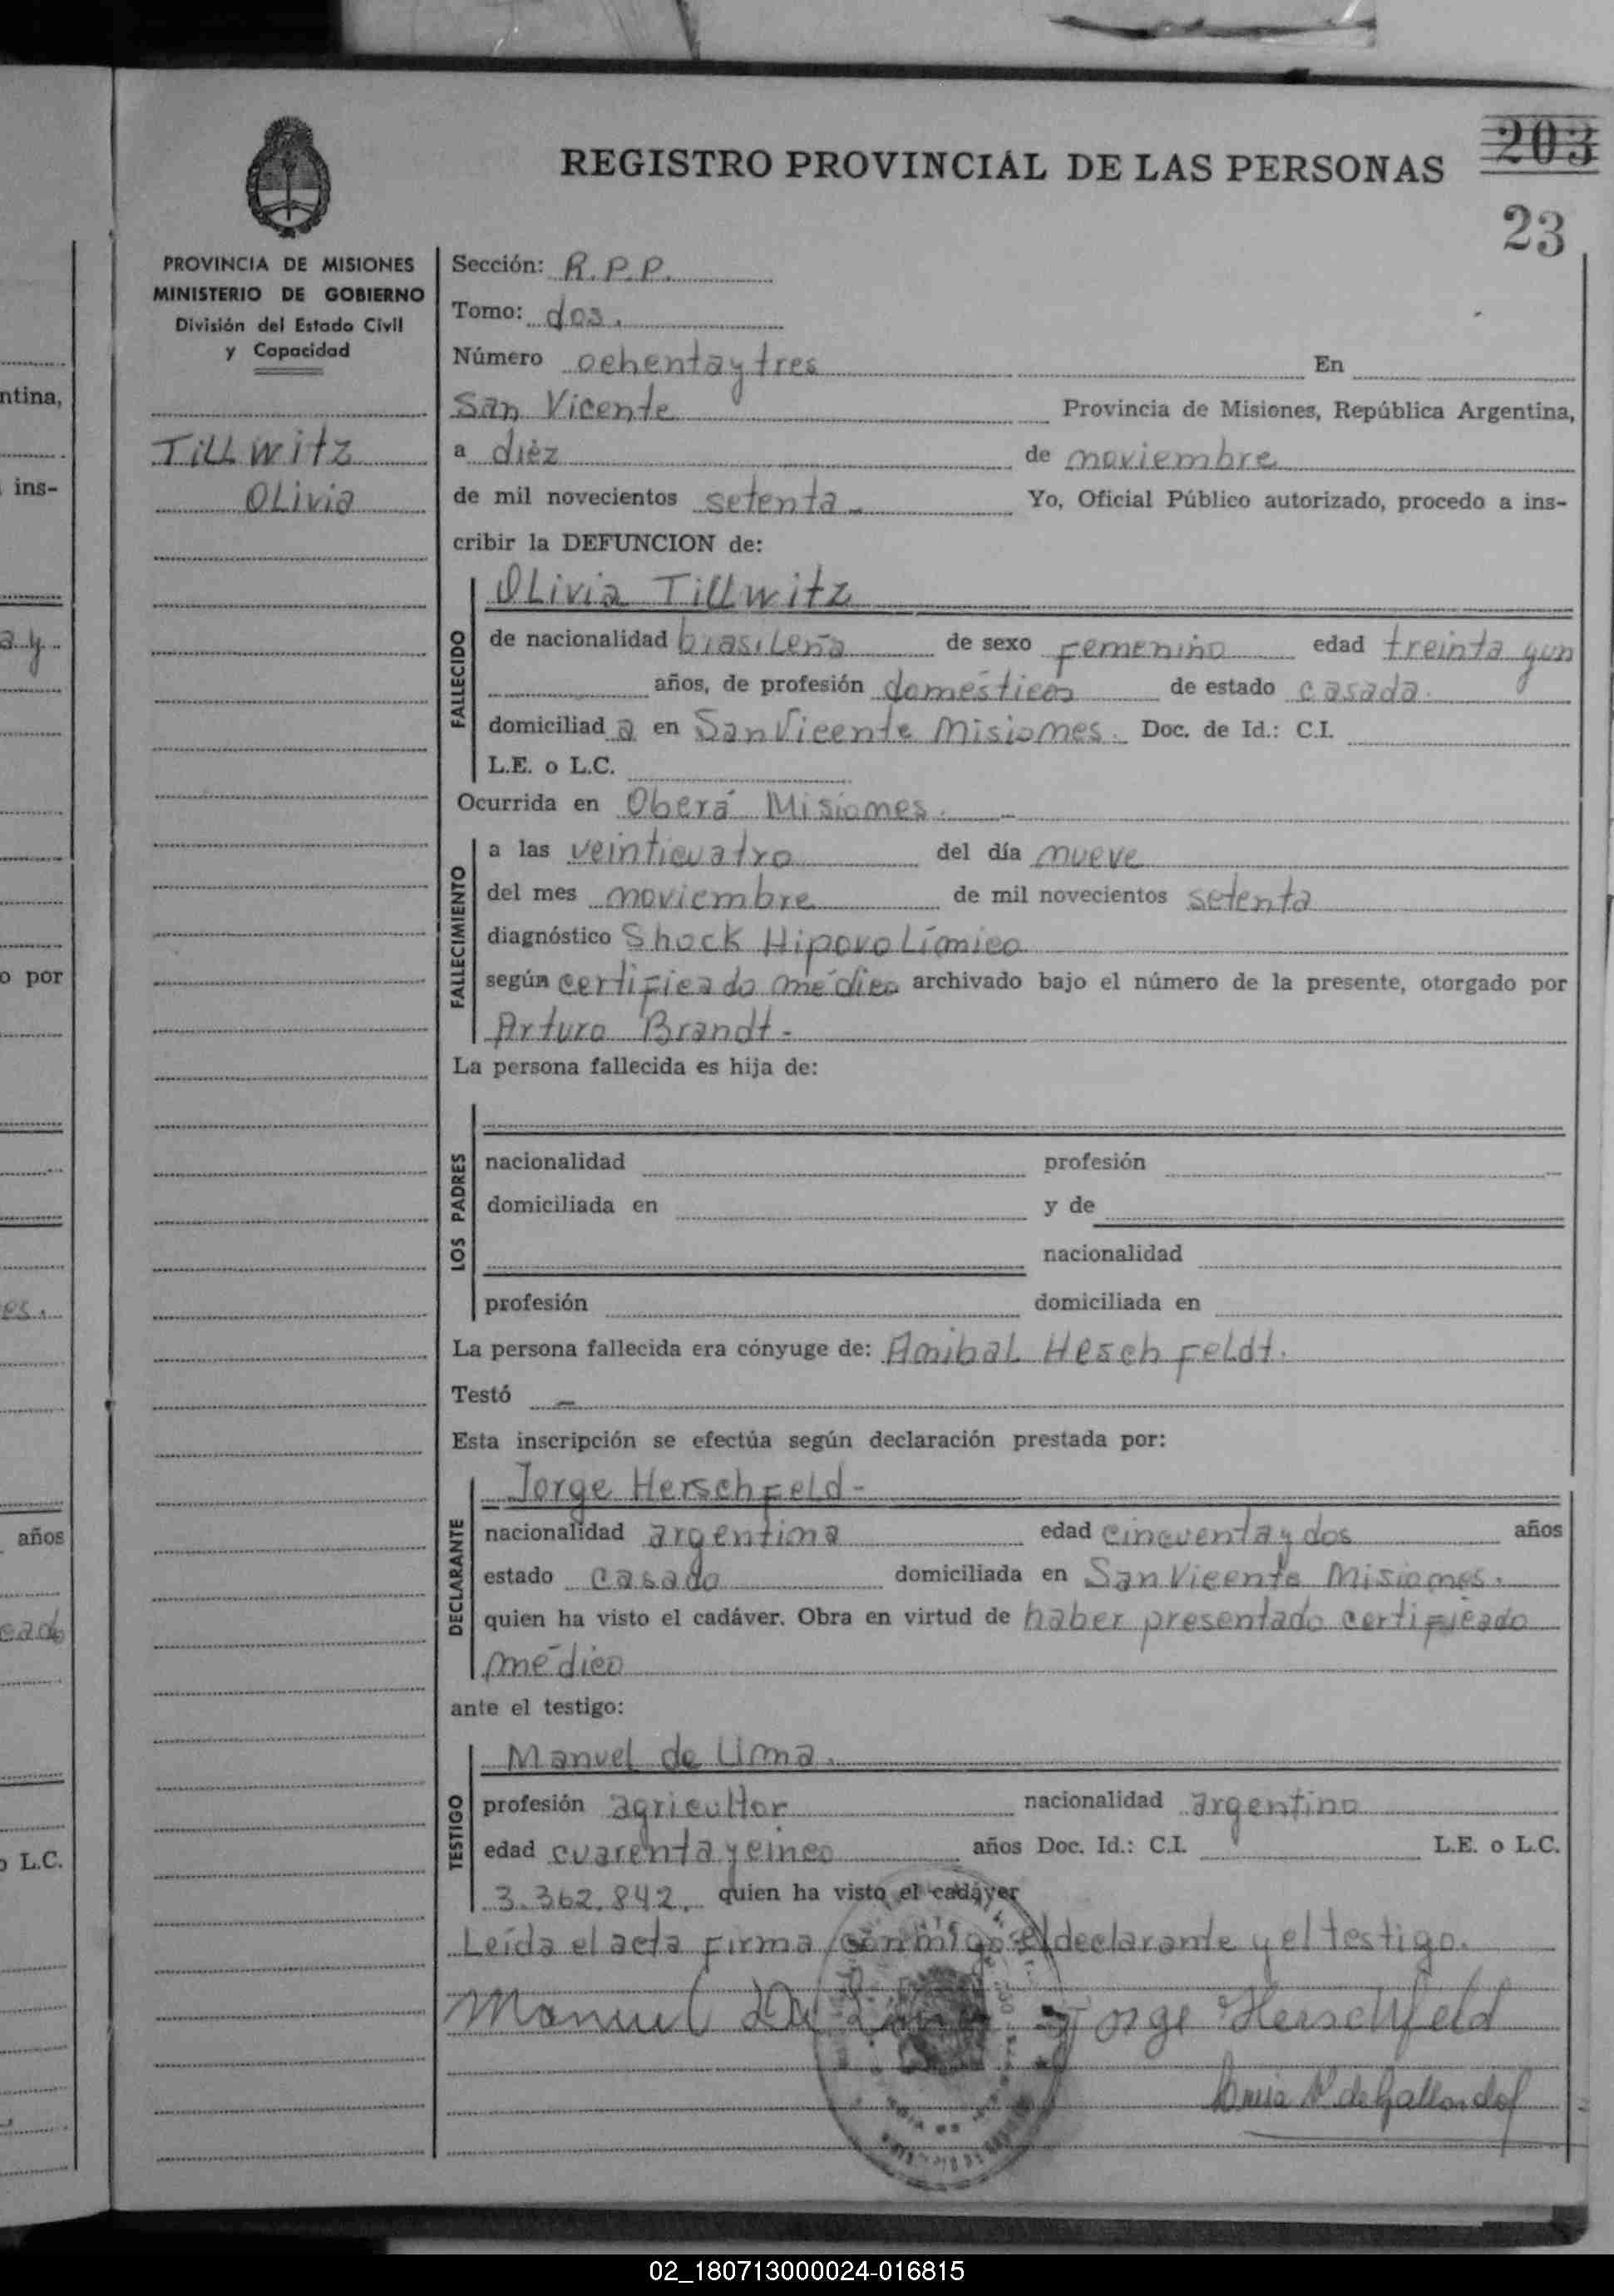 203
REGISTRO PROVINCIAL DE LAS PERSONAS
23
PROVINCIA DE MISIONES
MINISTERIO DE GOBIERNO
División del Estado Civil
y Capacidad
Tillwitz
Olivia
Sección: R.P.P.
Tomo: dos.
Número ochenta y tres En
San Vicente Provincia de Misiones, República Argentina,
a diéz de noviembre
de mil novecientos setenta- Yo, Oficial Público autorizado, procedo a ins-
cribir la DEFUNCION de:
FALLECIDO
Olivia Tillwitz
de nacionalidad brasileña de sexo femenino edad treinta y un
años, de profesión domésticos de estado casada.
domiciliad a en San Vicente Misiones. Doc. de Id.: C.I.
L.E. o L.C.
Ocurrida en Oberá Misiones.-
FALLECIMIENTO
a las veinticuatro del día nueve
del mes noviembre de mil novecientos setenta
diagnóstico Shock Hipovolímico
según certificado médico archivado bajo el número de la presente, otorgado por
Arturo Brandt-
La persona fallecida es hija de:
LOS PADRES
nacionalidad profesión
domiciliada en y de
nacionalidad
profesión domiciliada en
La persona fallecida era cónyuge de: Anibal Heschfeldt.
Testó -
Esta inscripción se efectúa según declaración prestada por:
DECLARANTE
Jorge Herschfeld-
nacionalidad argentina edad cincuenta y dos años
estado casado domiciliada en San Vicente Misiones.
quien ha visto el cadáver. Obra en virtud de haber presentado certificado
médico
ante el testigo:
TESTIGO
Manuel de Lima.
profesión agricultor nacionalidad argentino
edad cuarenta y cinco años Doc. Id.: C.I. L.E. o L.C.
3.362.842. quien ha visto el cadáver
Leída el acta firma conmigo el declarante y el testigo.
Manuel De Lima Jorge Herschfeld
de Gallardo
ntina,
ins-
a y
o por
es.
años
cado
o L.C.
02_180713000024-016815